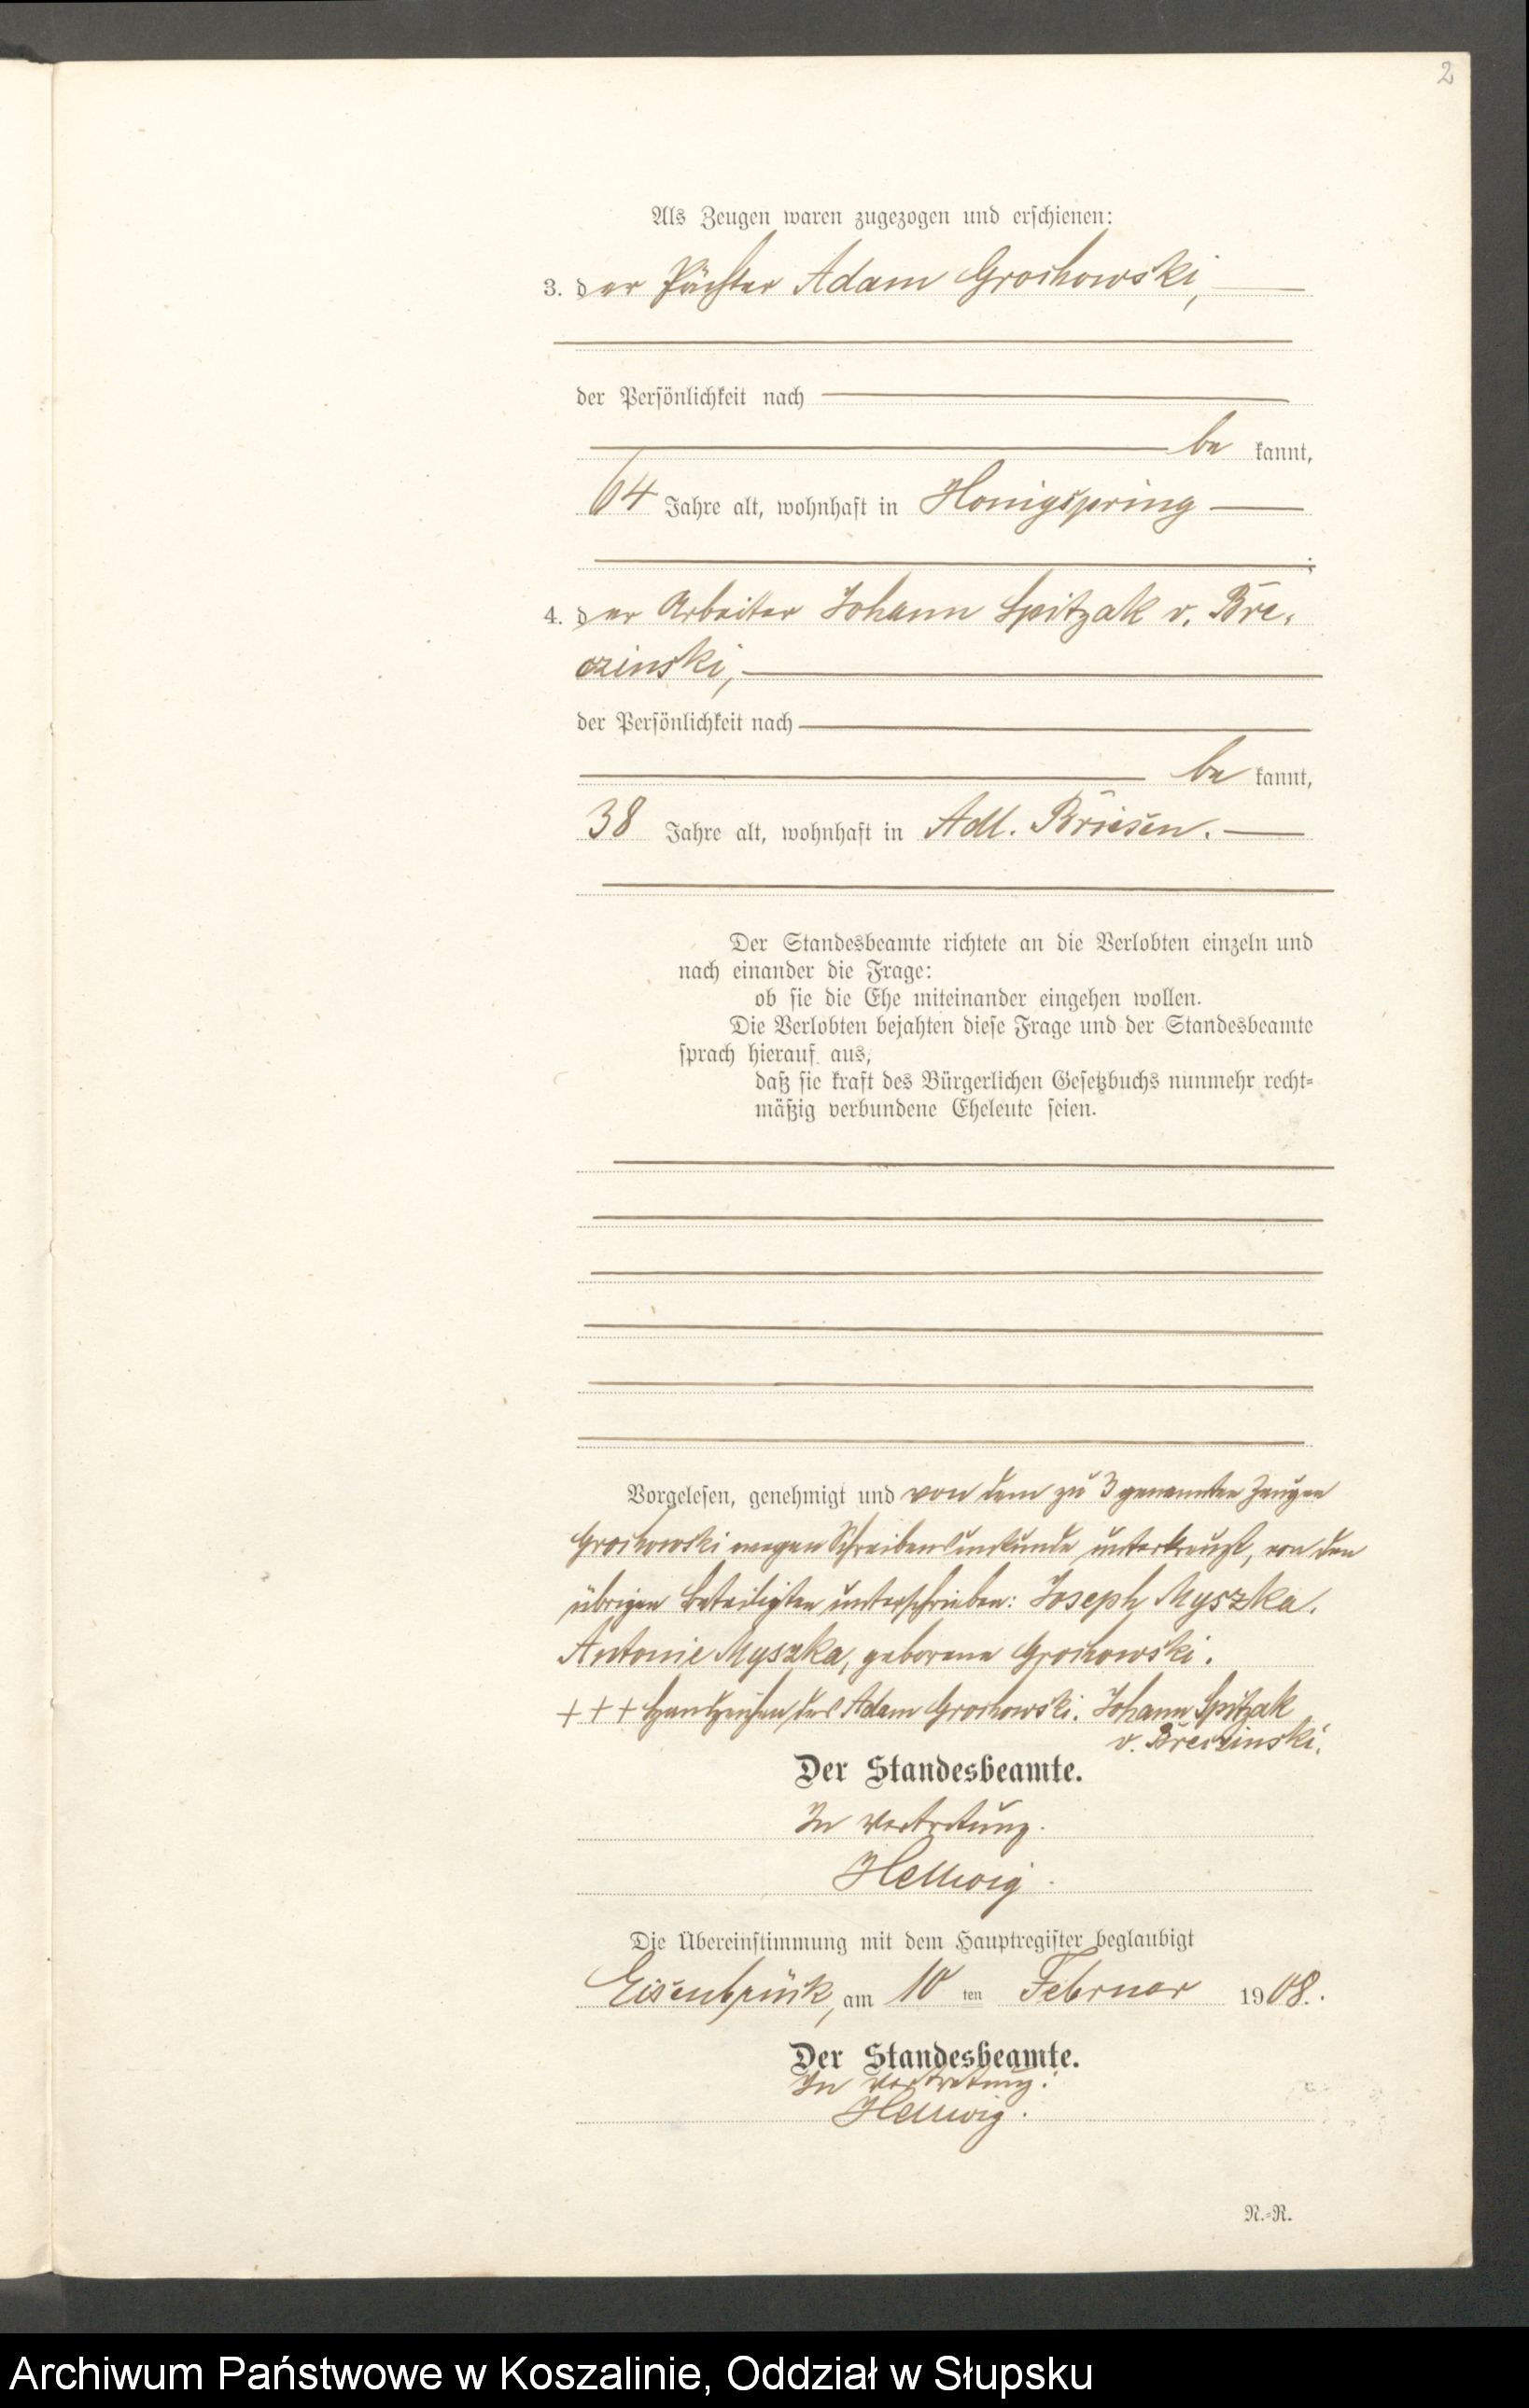 2
Als Zeugen waren zugezogen und erschienen:
3. der Pächter Adam Grochowski,
der Persönlichkeit nach
be kannt,
64 Jahre alt, wohnhaft in Honigspring
;
4. der Arbeiter Johann Spitzak v. Bre-
czinski,
der Persönlichkeit nach
be kannt,
38 Jahre alt, wohnhaft in Adl. Briesen.
Der Standesbeamte richtete an die Verlobten einzeln und
nach einander die Frage:
ob sie die Ehe miteinander eingehen wollen.
Die Verlobten bejahten diese Frage und der Standesbeamte
sprach hierauf aus,
daß sie kraft des Bürgerlichen Gesetzbuchs nunmehr recht-
mäßig verbundene Eheleute seien.
Vorgelesen, genehmigt und von dem zu 3 genannten Zeugen
Grochowski wegen Schreibensunkunde unterkreuzt, von den
übrigen Beteiligten unterschrieben: Joseph Myszka.
Antonie Myszka, geborene Grochowski.
+++ Handzeichen des Adam Grochowski. Johann Spitzak
v. Breczinski.
Der Standesbeamte.
In Vertretung.
Hellwig.
Die Übereinstimmung mit dem Hauptregister beglaubigt
Eisenbrück, am 10 ten Februar 1908.
Der Standesbeamte.
In Vertretung:
Hellwig.
N.-R.
Archiwum Państwowe w Koszalinie, Oddział w Słupsku